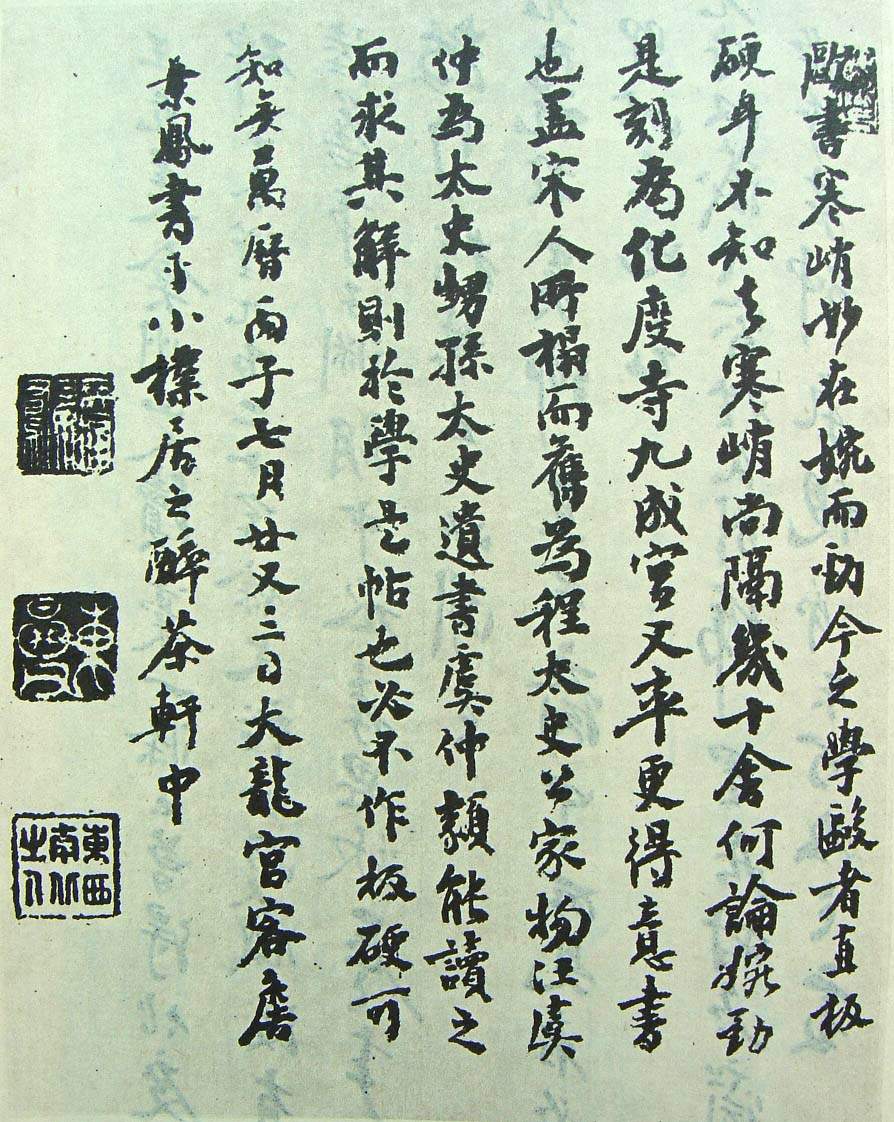 歐書寒峭妙在婉而勁今之學歐者直板
硬耳不知去寒峭尚隔幾十舍何論婉勁
是刻為化度寺九成宮又率更得意書
也孟宋人所榻而舊為程太史公家物汪虞
仲為太史甥孫太史遺書虞仲類能讀之
而求其解則於學是帖也必不作板硬可
知矣萬曆丙子七月廿又三日大龍宮客詹
景鳳書于小檏居之醉茶軒中
東
東西南北之人